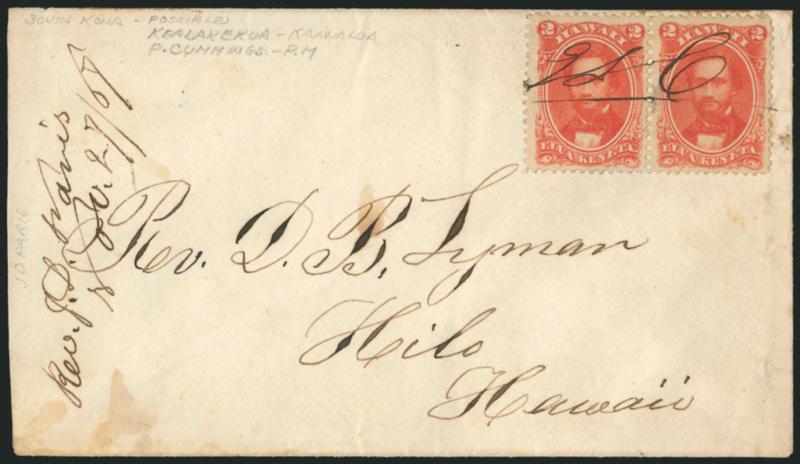 SOUTH KONA - POSSIBLE
KEALAKEKUA - KAAWALOA
P. CUMMINGS. - P.M
2 HAWAII 2
ELUA KENETA
2 HAWAII 2
ELUA KENETA
Rev. J. D. Paris
27/67
J D PARIS
Rev. D. B. Lyman
Hilo
Hawaii